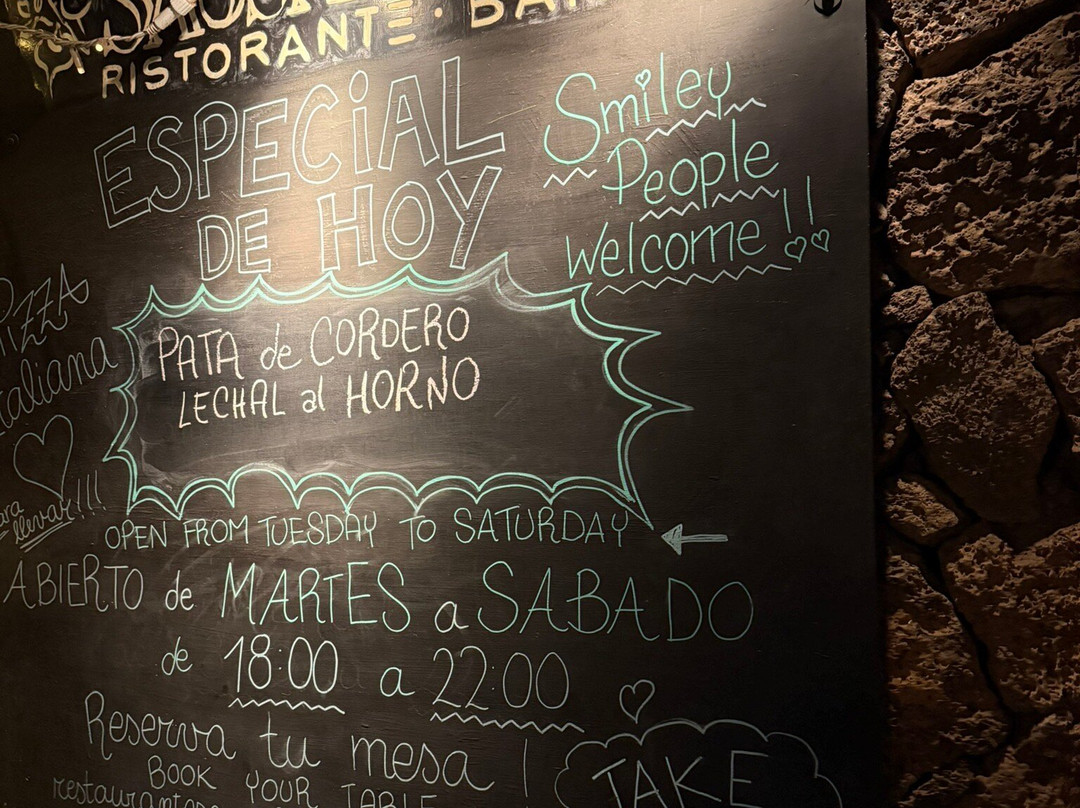 RISTORANTE · BAR
ESPECiAL
DE HOY
Smiley
People
Welcome!!
PiZZA
italiana
para
llevar!!!
PATA de CORDERO
LECHAL al HORNO
OPEN FROM TUESDAY TO SATURDAY
ABIERTO de MARTES a SABADO
de 18:00 a 22:00
Reserva tu mesa
BOOK YOUR TABLE
TAKE